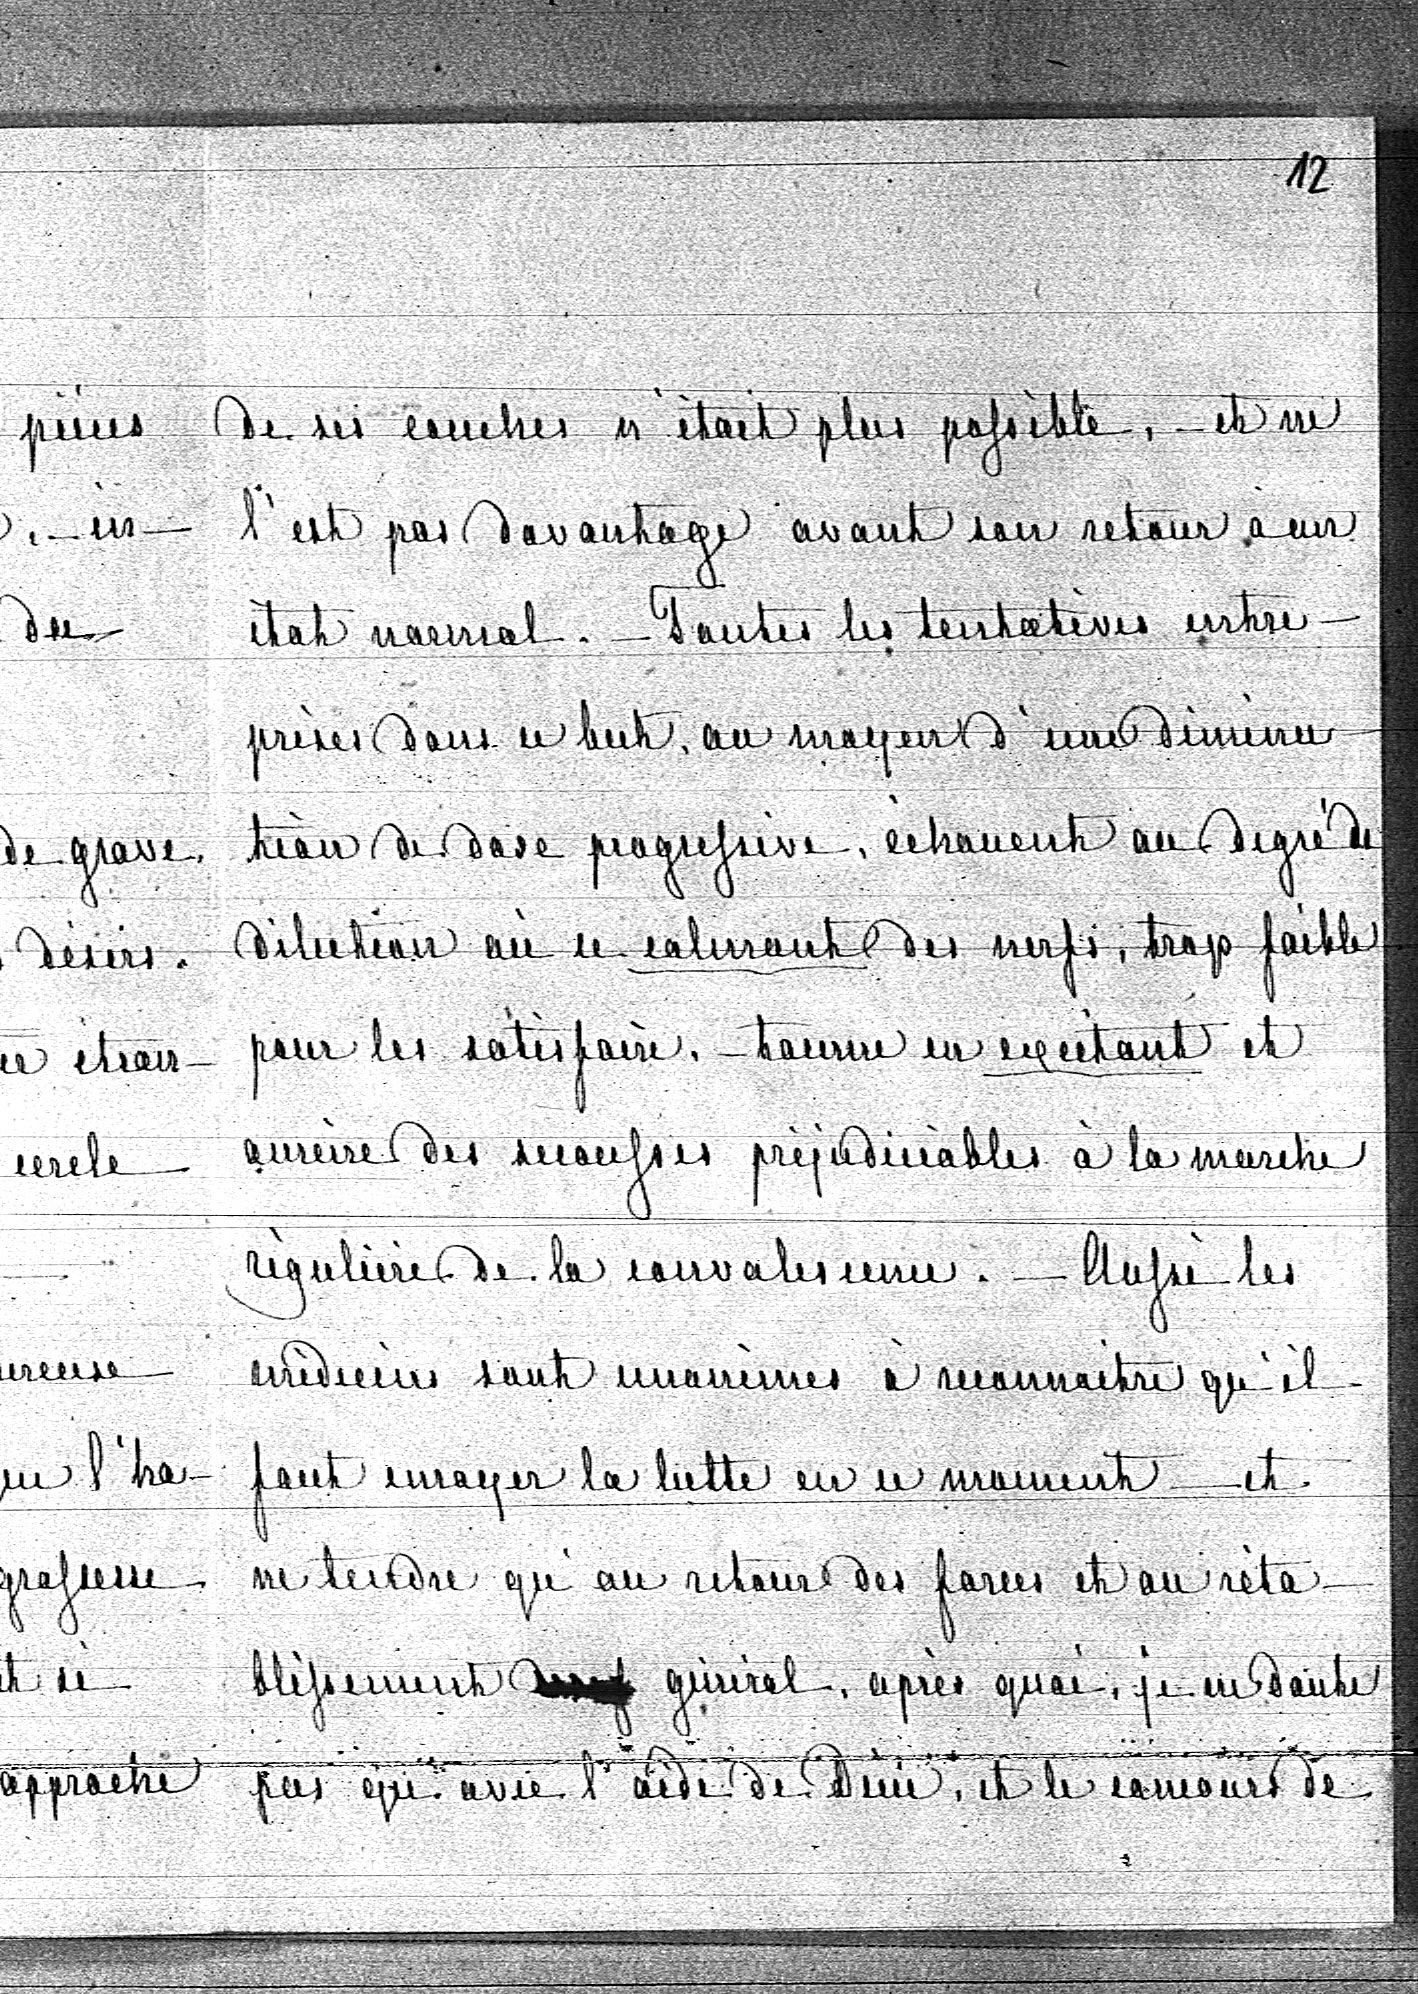 12
de ses couches n'était plus possible, - et ne
l'est pas davantage avant son retour à un
état normal. - Toutes les tentatives entre-
prises dans ce but, au moyen d'une diminu-
tion de dose progressive, échouent au degré de
dilution où ce calmant des nerfs, trop faible
pour les satisfaire, - tourne en excitant et
amène des secousses préjudiciables à la marche
régulière de la convalescence. - Aussi les
médecins sont unanimes à reconnaître qu'il
faut enrayer la lutte en ce moment - et
ne tendre qu'au retour des forces et au réta-
blissement général, après quoi, je ne doute
pas qu'avec l'aide de Dieu, et le concours de
pièces
. - in-
du
de grave,
désirs.
étran-
cercle
ureuse
l'ha-
grossesse
si
approche